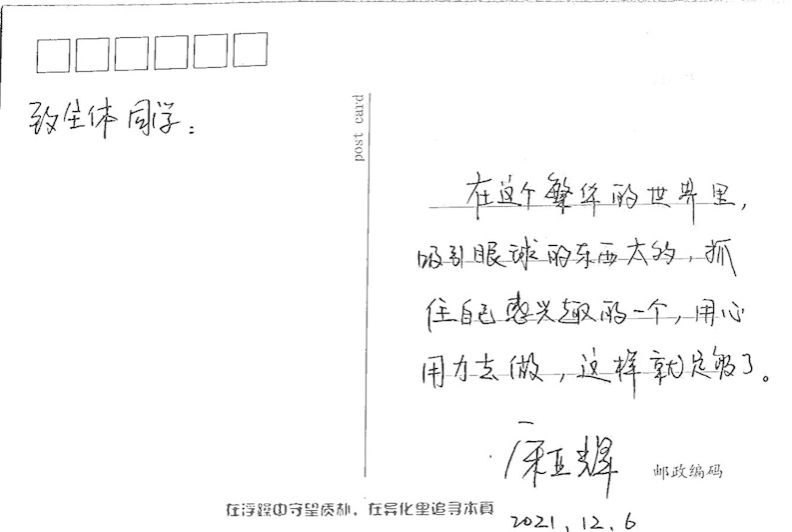 致全体同学：
post card
在这个繁华的世界里，
吸引眼球的东西太多，抓
住自己感兴趣的一个，用心
用力去做，这样就足够了。
邮政编码
2021.12.6
在浮躁中守望质朴，在异化里追寻本真